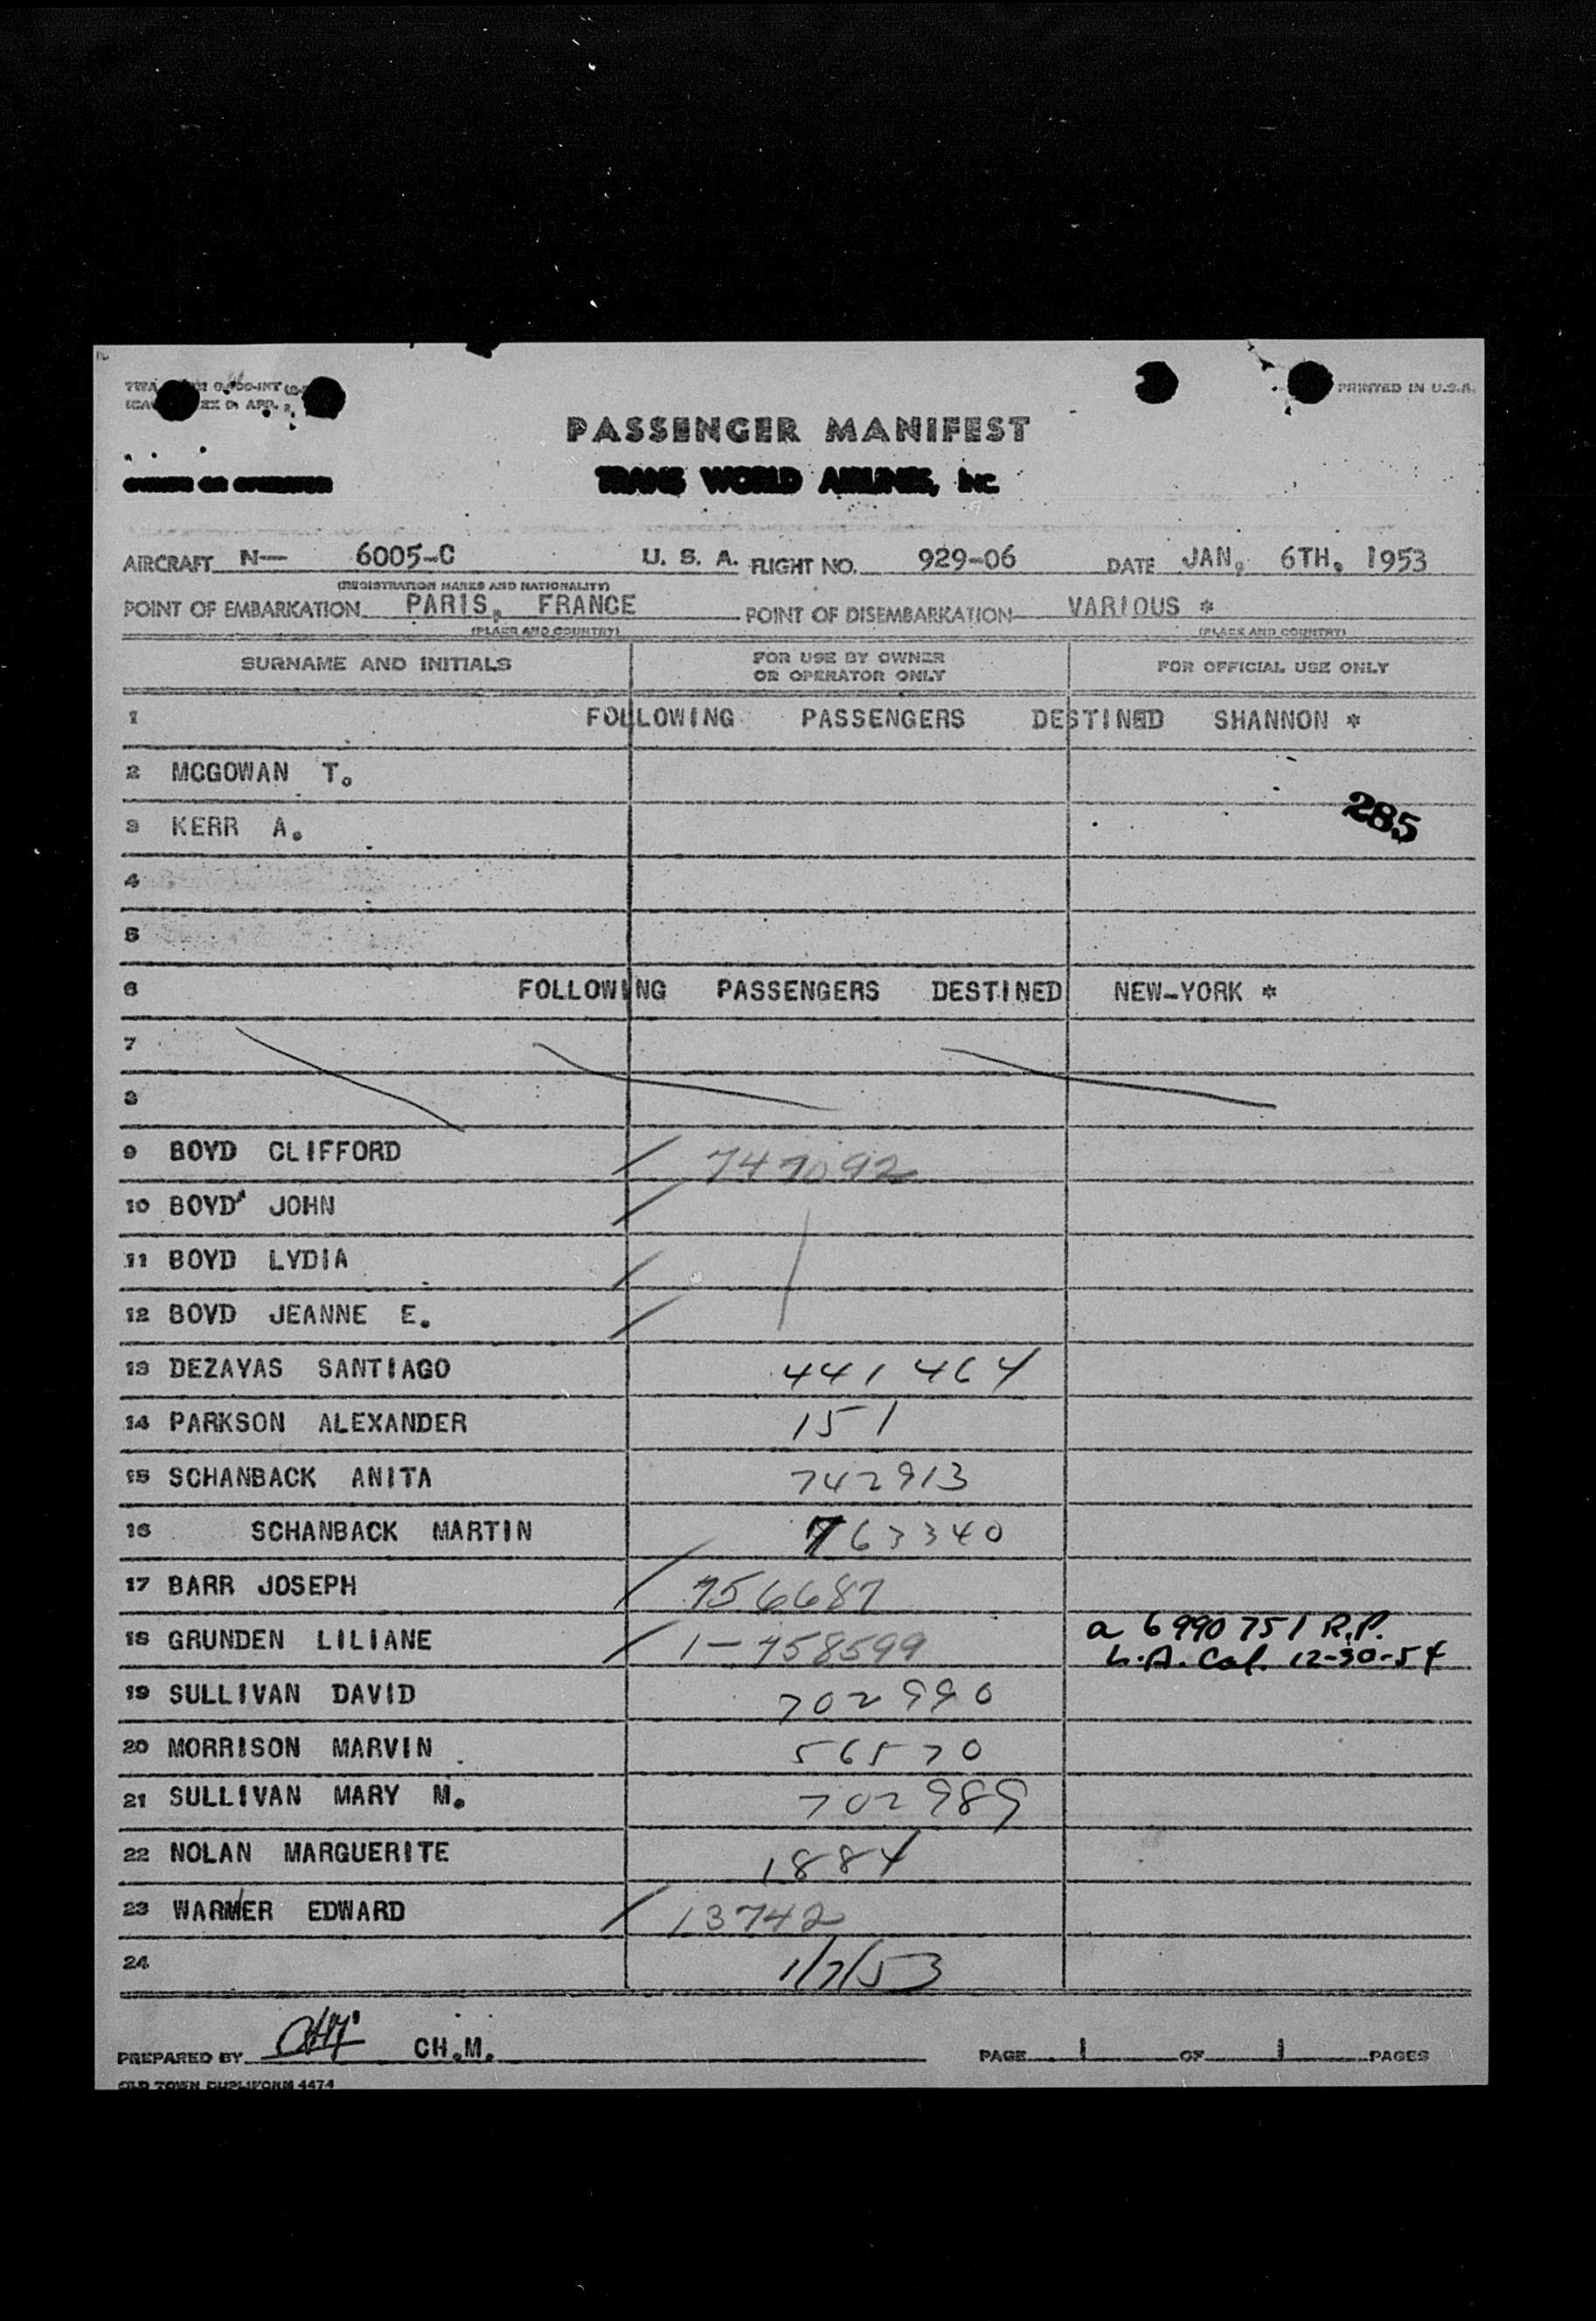 PRINTED IN U.S.A.
PASSENGER MANIFEST
OWNER OR OPERATOR TRANS WORLD AIRLINES, INC.
AIRCRAFT N— 6005-C U. S. A. FLIGHT NO. 929-06 DATE JAN, 6TH, 1953
(REGISTRATION MARKS AND NATIONALITY)
POINT OF EMBARKATION PARIS, FRANCE POINT OF DISEMBARKATION VARIOUS *
(PLACE AND COUNTRY) (PLACE AND COUNTRY)
SURNAME AND INITIALS FOR USE BY OWNER OR OPERATOR ONLY FOR OFFICIAL USE ONLY
1 FOLLOWING PASSENGERS DESTINED SHANNON *
2 MCGOWAN T.
285
3 KERR A.
4
5
6 FOLLOWING PASSENGERS DESTINED NEW-YORK *
7
8
9 BOYD CLIFFORD / 747092
10 BOYD JOHN /
11 BOYD LYDIA /
12 BOYD JEANNE E. /
13 DEZAYAS SANTIAGO 441464
14 PARKSON ALEXANDER 151
15 SCHANBACK ANITA 742913
16 SCHANBACK MARTIN 763340
17 BARR JOSEPH / 756687
18 GRUNDEN LILIANE / 1-758599 a 6990751 R.P.
L.A. Cal. 12-30-54
19 SULLIVAN DAVID 702990
20 MORRISON MARVIN 56570
21 SULLIVAN MARY M. 702989
22 NOLAN MARGUERITE 1884
23 WARMER EDWARD / 13742
24 1/7/53
PREPARED BY CH.M. PAGE 1 OF 1 PAGES
OLD TOWN DUPLIFORM 4474